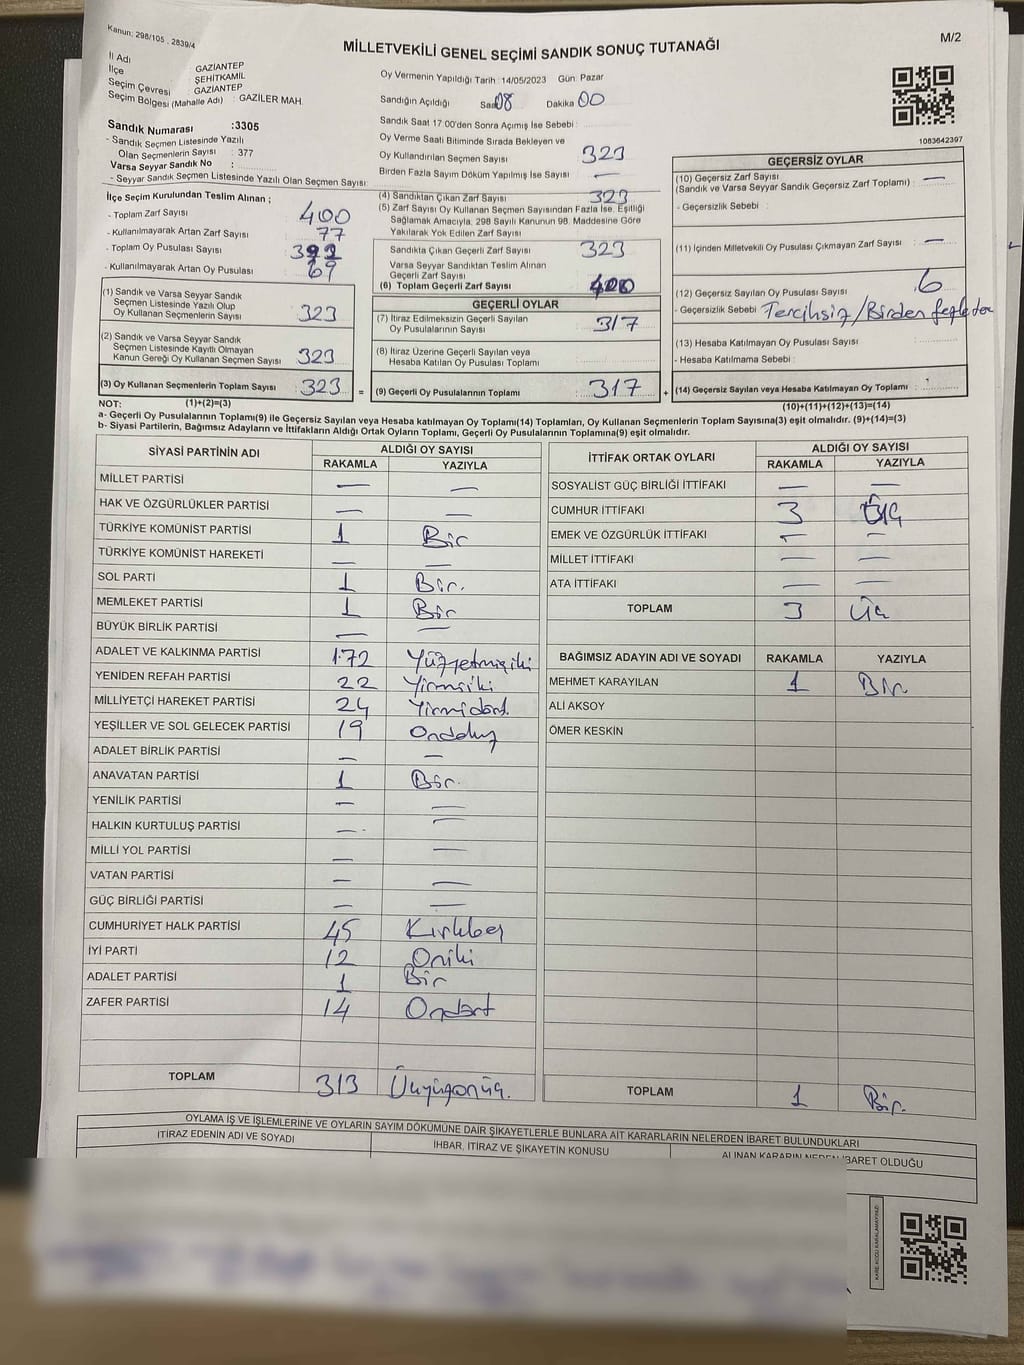 Kanun: 298/105 , 2839/4
MİLLETVEKİLİ GENEL SEÇİMİ SANDIK SONUÇ TUTANAĞI
M/2
İl Adı : GAZİANTEP
İlçe : ŞEHİTKAMİL
Seçim Çevresi : GAZİANTEP
Seçim Bölgesi (Mahalle Adı) : GAZİLER MAH.
Sandık Numarası :3305
- Sandık Seçmen Listesinde Yazılı
Olan Seçmenlerin Sayısı : 377
Varsa Seyyar Sandık No :
- Seyyar Sandık Listesinde Yazılı Olan Seçmen Sayısı:
Oy Vermenin Yapıldığı Tarih : 14/05/2023 Gün: Pazar
Sandığın Açıldığı Saat 08 Dakika 00
Sandık Saat 17.00'den Sonra Açımış İse Sebebi :
Oy Verme Saati Bitiminde Sırada Bekleyen ve
Oy Kullandırılan Seçmen Sayısı 323
Birden Fazla Sayım Döküm Yapılmış İse Sayısı : —
1083642397
İlçe Seçim Kurulundan Teslim Alınan ;
- Toplam Zarf Sayısı : 400
- Kullanılmayarak Artan Zarf Sayısı : 77
- Toplam Oy Pusulası Sayısı : 392
- Kullanılmayarak Artan Oy Pusulası : 69
(1) Sandık ve Varsa Seyyar Sandık
Seçmen Listesinde Yazılı Olup
Oy Kullanan Seçmenlerin Sayısı : 323
(2) Sandık ve Varsa Seyyar Sandık
Seçmen Listesinde Kayıtlı Olmayan
Kanun Gereği Oy Kullanan Seçmen Sayısı : 323
(3) Oy Kullanan Seçmenlerin Toplam Sayısı : 323
(4) Sandıktan Çıkan Zarf Sayısı : 323
(5) Zarf Sayısı Oy Kullanan Seçmen Sayısından Fazla İse, Eşitliği
Sağlamak Amacıyla, 298 Sayılı Kanunun 98. Maddesine Göre
Yakılarak Yok Edilen Zarf Sayısı :
Sandıkta Çıkan Geçerli Zarf Sayısı : 323
Varsa Seyyar Sandıktan Teslim Alınan
Geçerli Zarf Sayısı
(6) Toplam Geçerli Zarf Sayısı : 400
GEÇERLİ OYLAR
(7) İtiraz Edilmeksizin Geçerli Sayılan
Oy Pusulalarının Sayısı : 317
(8) İtiraz Üzerine Geçerli Sayılan veya
Hesaba Katılan Oy Pusulası Toplamı :
= (9) Geçerli Oy Pusulalarının Toplamı : 317 +
GEÇERSİZ OYLAR
(10) Geçersiz Zarf Sayısı
(Sandık ve Varsa Seyyar Sandık Geçersiz Zarf Toplamı) : —
- Geçersizlik Sebebi :
(11) İçinden Milletvekili Oy Pusulası Çıkmayan Zarf Sayısı : —
(12) Geçersiz Sayılan Oy Pusulası Sayısı : 6
- Geçersizlik Sebebi : Tercihsiz / Birden
(13) Hesaba Katılmayan Oy Pusulası Sayısı :
- Hesaba Katılmama Sebebi :
(14) Geçersiz Sayılan veya Hesaba Katılmayan Oy Toplamı :
NOT: (1)+(2)=(3) (10)+(11)+(12)+(13)=(14)
a- Geçerli Oy Pusulasının Toplamı(9) ile Geçersiz Sayılan veya Hesaba katılmayan Oy Toplamı(14) Toplamları, Oy Kullanan Seçmenlerin Toplam Sayısına(3) eşit olmalıdır. (9)+(14)=(3)
b- Siyasi Partilerin, Bağımsız Adayların ve İttifakların Aldığı Ortak Oyların Toplamı, Geçerli Oy Pusulalarının Toplamına(9) eşit olmalıdır.
SİYASİ PARTİNİN ADI ALDIĞI OY SAYISI
RAKAMLA YAZIYLA
MİLLET PARTİSİ — —
HAK VE ÖZGÜRLÜKLER PARTİSİ — —
TÜRKİYE KOMÜNİST PARTİSİ 1 Bir
TÜRKİYE KOMÜNİST HAREKETİ — —
SOL PARTİ 1 Bir.
MEMLEKET PARTİSİ 1 Bir
BÜYÜK BİRLİK PARTİSİ — —
ADALET VE KALKINMA PARTİSİ 172 Yüzyetmişiki
YENİDEN REFAH PARTİSİ 22 Yirmiiki
MİLLİYETÇİ HAREKET PARTİSİ 24 Yirmidört.
YEŞİLLER VE SOL GELECEK PARTİSİ 19 Ondokuz
ADALET BİRLİK PARTİSİ — —
ANAVATAN PARTİSİ 1 Bir.
YENİLİK PARTİSİ — —
HALKIN KURTULUŞ PARTİSİ — —
MİLLİ YOL PARTİSİ — —
VATAN PARTİSİ — —
GÜÇ BİRLİĞİ PARTİSİ — —
CUMHURİYET HALK PARTİSİ 45 Kırkbeş
İYİ PARTİ 12 Oniki
ADALET PARTİSİ 1 Bir
ZAFER PARTİSİ 14 Ondört
TOPLAM 313 Üçyüzonüç.
İTTİFAK ORTAK OYLARI ALDIĞI OY SAYISI
RAKAMLA YAZIYLA
SOSYALİST GÜÇ BİRLİĞİ İTTİFAKI — —
CUMHUR İTTİFAKI 3 Üç
EMEK VE ÖZGÜRLÜK İTTİFAKI — —
MİLLET İTTİFAKI — —
ATA İTTİFAKI — —
TOPLAM 3 Üç
BAĞIMSIZ ADAYIN ADI VE SOYADI RAKAMLA YAZIYLA
MEHMET KARAYILAN 1 Bir.
ALİ AKSOY
ÖMER KESKİN
TOPLAM 1 Bir.
OYLAMA İŞ VE İŞLEMLERİNE VE OYLARIN SAYIM DÖKÜMÜNE DAİR ŞİKAYETLERLE BUNLARA AİT KARARLARIN NELERDEN İBARET BULUNDUKLARI
İTİRAZ EDENİN ADI VE SOYADI İHBAR, İTİRAZ VE ŞİKAYETİN KONUSU ALINAN KARARIN NEDEN İBARET OLDUĞU